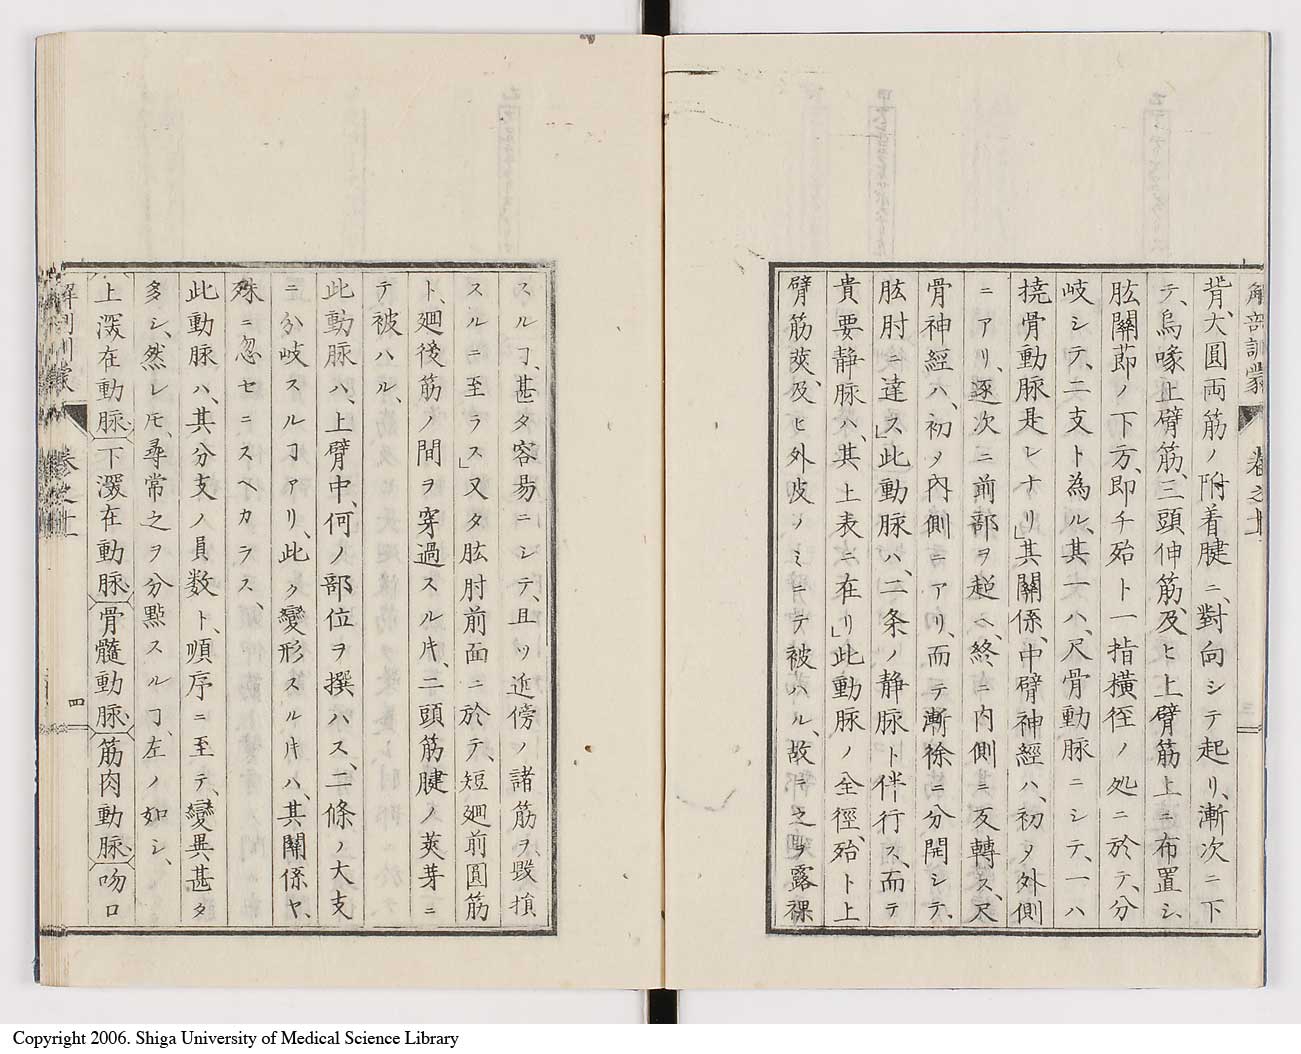 解剖訓蒙 卷之十
背、大圓両筋ノ附着腱ニ、對向シテ起リ、漸次ニ下
テ、烏喙止臂筋、三頭伸筋、及ヒ上臂筋上ニ布置シ、
肱關節ノ下方、即チ殆ト一指橫徑ノ処ニ於テ、分
岐シテ、二支ト為ル、其一ハ、尺骨動脈ニシテ、一ハ
撓骨動脈是レナリ」其關係、中臂神經ハ、初メ外側
ニアリ、逐次ニ前部ヲ超ヘ、終ニ内側ニ反轉ス、尺
骨神經ハ、初メ內側ニアリ、而テ漸徐ニ分開シテ、
肱肘ニ達ス」此動脈ハ、二条ノ静脈ト伴行ス、而テ
貴要静脈ハ、其上表ニ在リ」此動脈ノ全徑、殆ト上
臂筋莢、及ヒ外皮ノミニテ被ハル、故ニ之ヲ露裸
スルヿ、甚タ容易ニシテ、且ツ近傍ノ諸筋ヲ、毀損
スルニ至ラス」又タ肱肘前面ニ於テ、短廻前圓筋
ト、廻後筋ノ間ヲ穿過スルキ、二頭筋腱ノ莢芽ニ
テ被ハル、
此動脈ハ、上臂中、何ノ部位ヲ撰ハス、二條ノ大支
ニ分岐スルヿアリ、此ク變形スルキハ、其關係ヤ、
殊ニ忽セニスヘカラス、
此動脈ハ、其分支ノ員数ト、順序ニ至テ、變異甚タ
多シ、然レ𪜈、尋常之ヲ分點スルヿ、左ノ如シ、
上深在動脈 下深在動脈 骨髓動脈 筋肉動脈 吻口
解剖訓蒙 卷之十 四
Copyright 2006. Shiga University of Medical Science Library